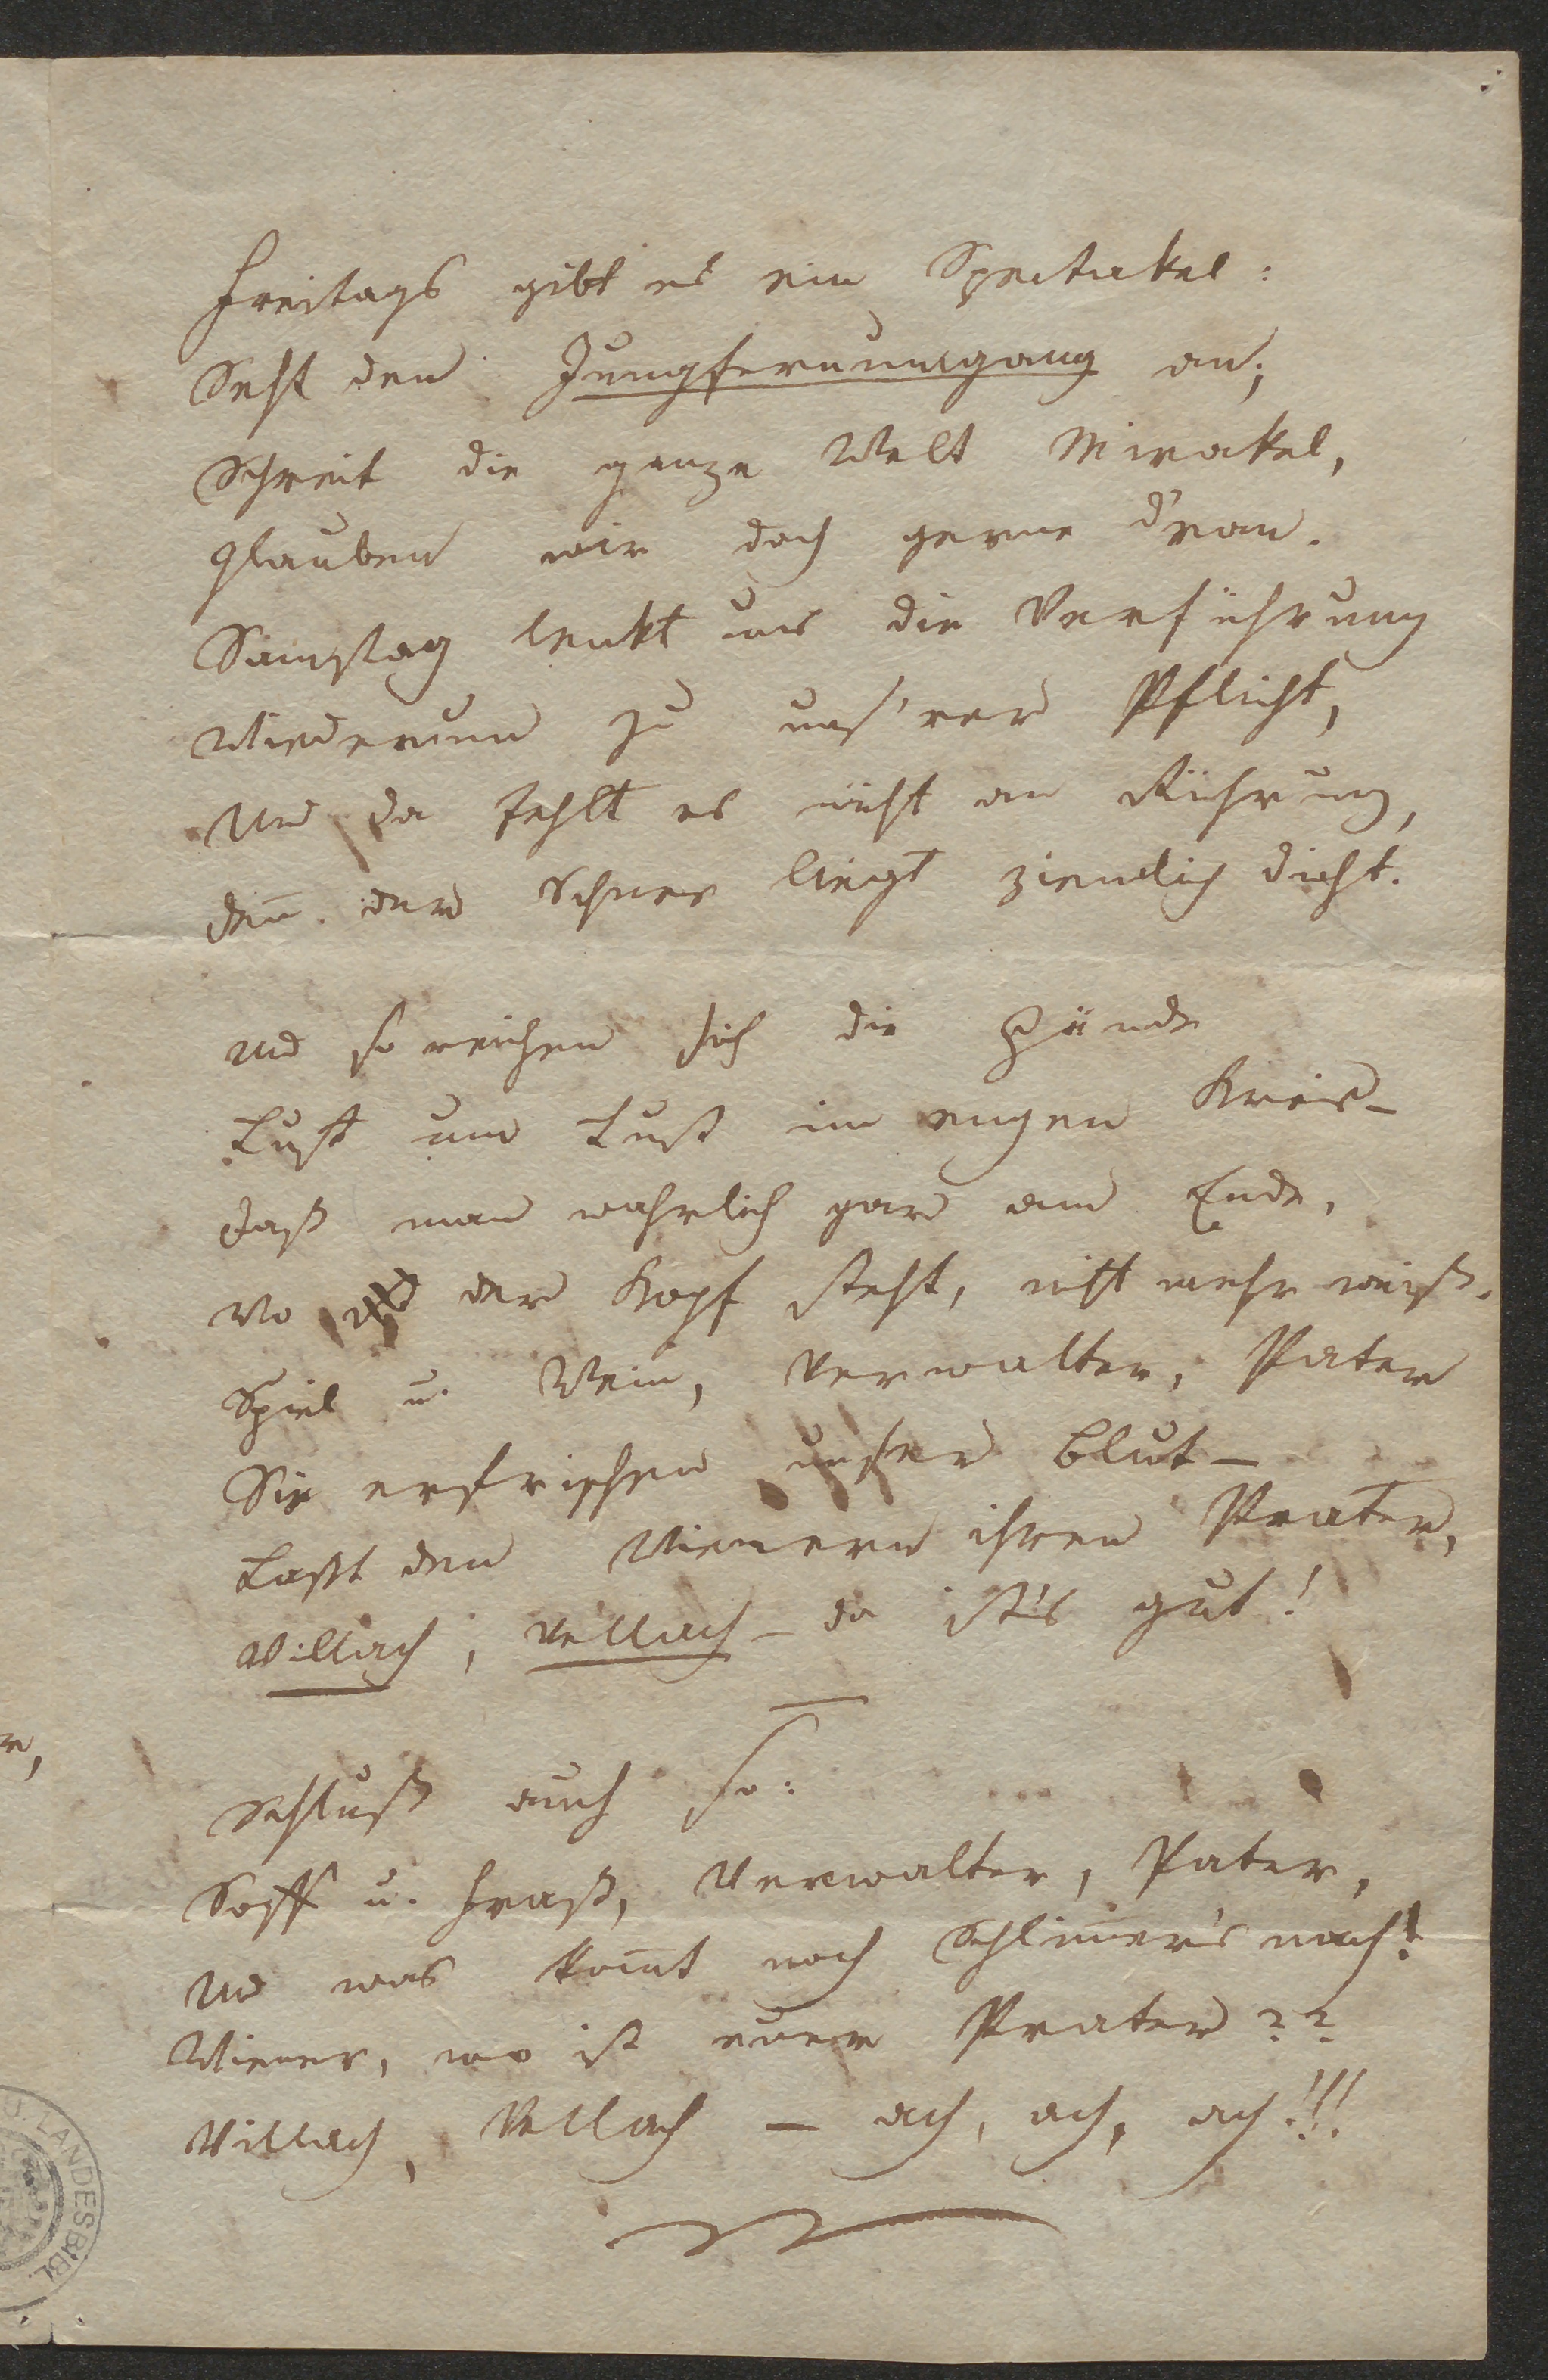 Freitags gibt es ein Spectakel:
Seht den Jungfernumgang an;
Schreit die ganze Welt Mirakel,
Glauben wir doch gerne d'ran.
Samstag lenkt uns die Verführung
Wiederum zu uns'rer Pflicht,
Und da fehlt es nicht an Rührung,
Den̄ der Schnee liegt ziemlich dicht.
Und so reichen sich die Hände
Lust um Lust im engen Kreis –
Daß man wahrlich gar am Ende,
Wo der Kopf steht, nicht mehr weiß.
Spiel u. Wein, Verwalter, Pater
Sie erfrischen unser Blut –
Laßt den Wienern ihren Prater,
Villach, Vellach – da ist's gut!
Schluß auch so:
Soff u. Fraß, Verwalter, Pater,
Und was kom̄t noch Schlim̄er's nach!
Wiener, wo ist euer Prater??
Villach, Vellach – ach, ach, ach!!!
U. LANDESBIBL.